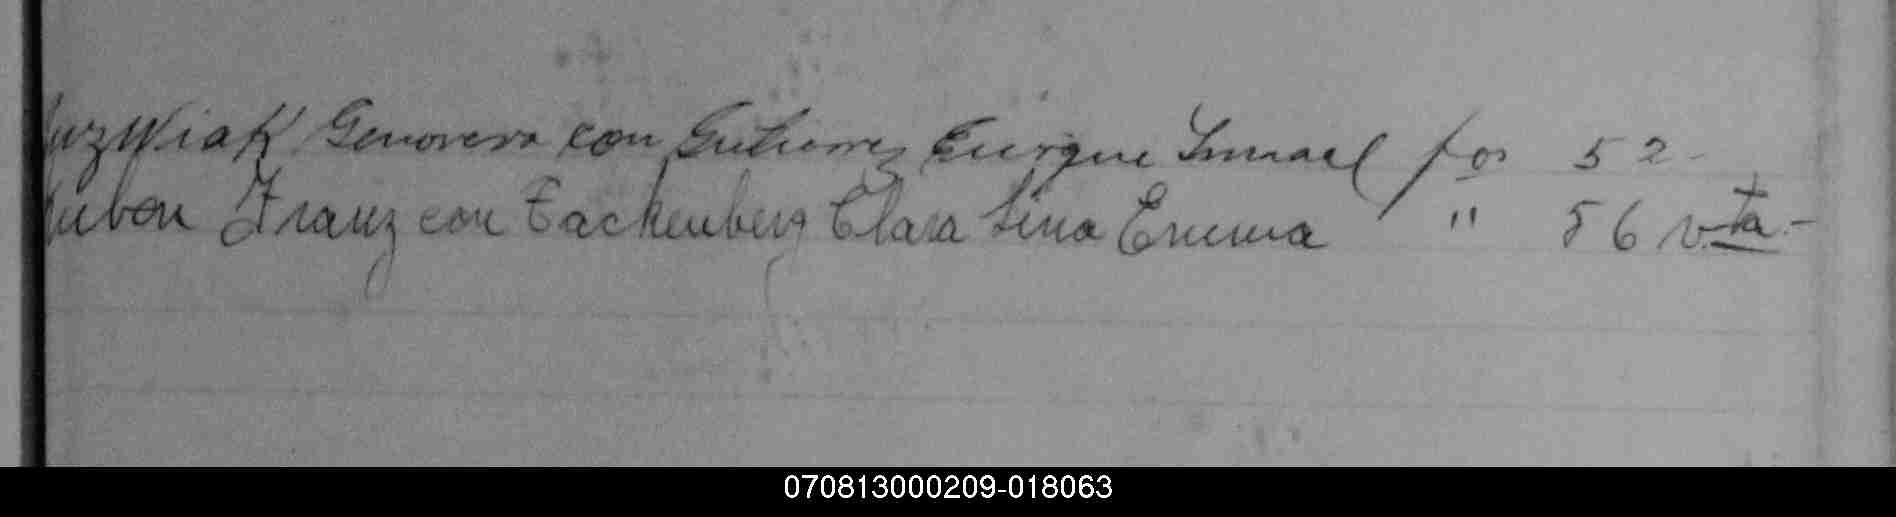 Genoveva con Gutierrez Enrique Ismael fos 52-
Franz con Tackenberg Clara Lina Emma " 56 vta.-
070813000209-018063